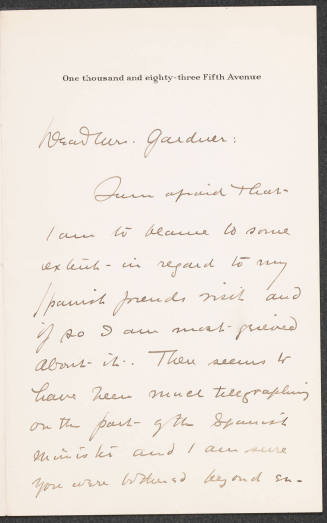 One thousand and eighty-three Fifth Avenue
Dear Mrs. Gardner:
I am afraid that
I am to blame to some
extent in regard to my
Spanish friends visit and
if so I am most grieved
about it. There seems to
have been much telegraphing
on the part of the Spanish
Minister and I am sure
you were bothered beyond en-